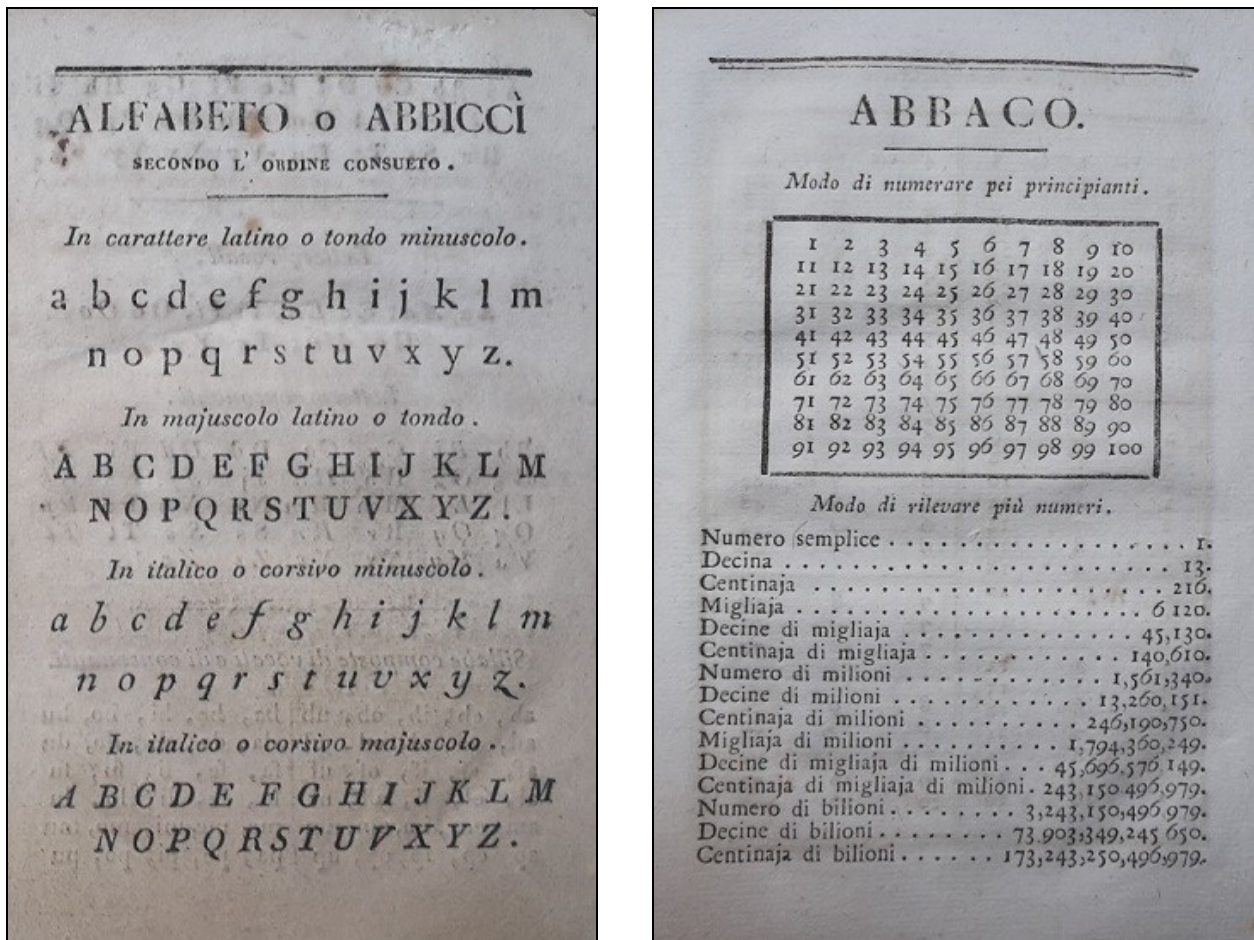 ALFABETO o ABBICCÌ
SECONDO L' ORDINE CONSUETO .
In carattere latino o tondo minuscolo.
a b c d e f g h i j k l m
n o p q r s t u v x y z.
In majuscolo latino o tondo .
A B C D E F G H I J K L M
N O P Q R S T U V X Y Z .
In italico o corsivo minuscolo .
a b c d e f g h i j k l m
n o p q r s t u v x y z.
In italico o corsivo majuscolo .
A B C D E F G H I J K L M
N O P Q R S T U V X Y Z .
ABBACO.
Modo di numerare pei principianti .
1 2 3 4 5 6 7 8 9 10
11 12 13 14 15 16 17 18 19 20
21 22 23 24 25 26 27 28 29 30
31 32 33 34 35 36 37 38 39 40
41 42 43 44 45 46 47 48 49 50
51 52 53 54 55 56 57 58 59 60
61 62 63 64 65 66 67 68 69 70
71 72 73 74 75 76 77 78 79 80
81 82 83 84 85 86 87 88 89 90
91 92 93 94 95 96 97 98 99 100
Modo di rilevare più numeri .
Numero semplice . . . . . . . . . . . . . . . . . . 1.
Decina . . . . . . . . . . . . . . . . . . . . . . . 13.
Centinaja . . . . . . . . . . . . . . . . . . . . . 216.
Migliaja . . . . . . . . . . . . . . . . . . . . 6 120.
Decine di migliaja . . . . . . . . . . . . . 45,130.
Centinaja di migliaja . . . . . . . . . . . 140,610.
Numero di milioni . . . . . . . . . . . . 1,561,340.
Decine di milioni . . . . . . . . . . . 13,260,151.
Centinaja di milioni . . . . . . . . . . 246,190,750.
Migliaja di milioni . . . . . . . . . 1,794,360,249.
Decine di migliaja di milioni . . . 45,696,576,149.
Centinaja di migliaja di milioni . 243,150 496,979.
Numero di bilioni . . . . . . . . 3,243,150,496,979.
Decine di bilioni . . . . . . . . 73.903,349,245 650.
Centinaja di bilioni . . . . . . 173,243,250,496,979.